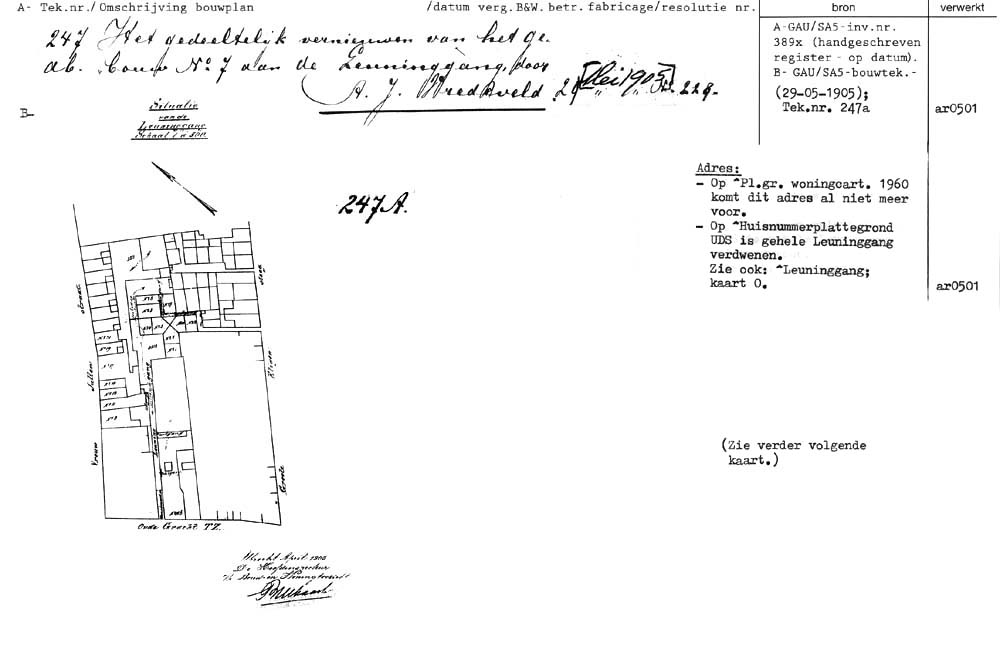 A- Tek.nr./Omschrijving bouwplan /datum verg.B&W. betr. fabricage/resolutie nr. bron verwerkt
247 Het gedeeltelijk vernieuwen van het ge.
deb. bouw No. 7 aan de Leuninggang, door
A. J. Vredeveld 29 Mei 1905 229.
A-GAU/SA5-inv.nr.
389x (handgeschreven
register - op datum).
B- GAU/SA5-bouwtek.-
(29-05-1905);
Tek.nr. 247a
ar0501
B-
Situatie
van de
Leuninggang
Schaal
247A.
Adres:
- Op ^Pl.gr. woningcart. 1960
komt dit adres al niet meer
voor.
- Op ^Huisnummerplattegrond
UDS is gehele Leuninggang
verdwenen.
Zie ook: ^Leuninggang;
kaart 0.
ar0501
straat
Jutten
Vrouw
steeg
Kleine
Groote
Oude Gracht TZ.
(Zie verder volgende
kaart.)
Utrecht April 1905
De Hoofdinspecteur